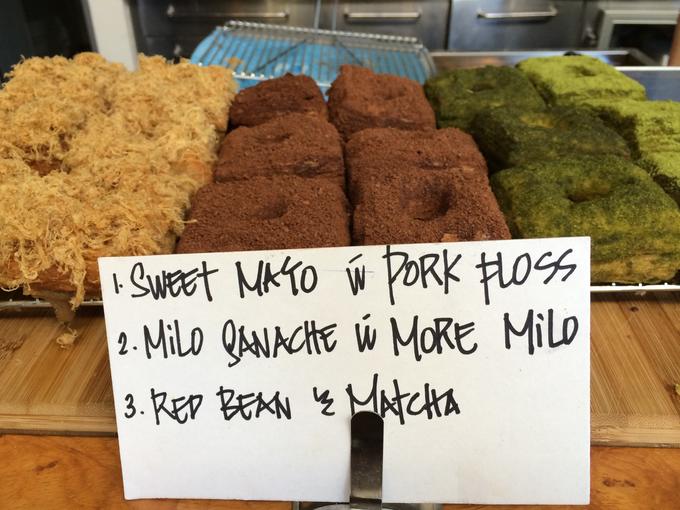 1. SWEET MAYO w̄ PORK FLOSS
2. MILO GANACHE w̄ MORE MILO
3. RED BEAN & MATCHA